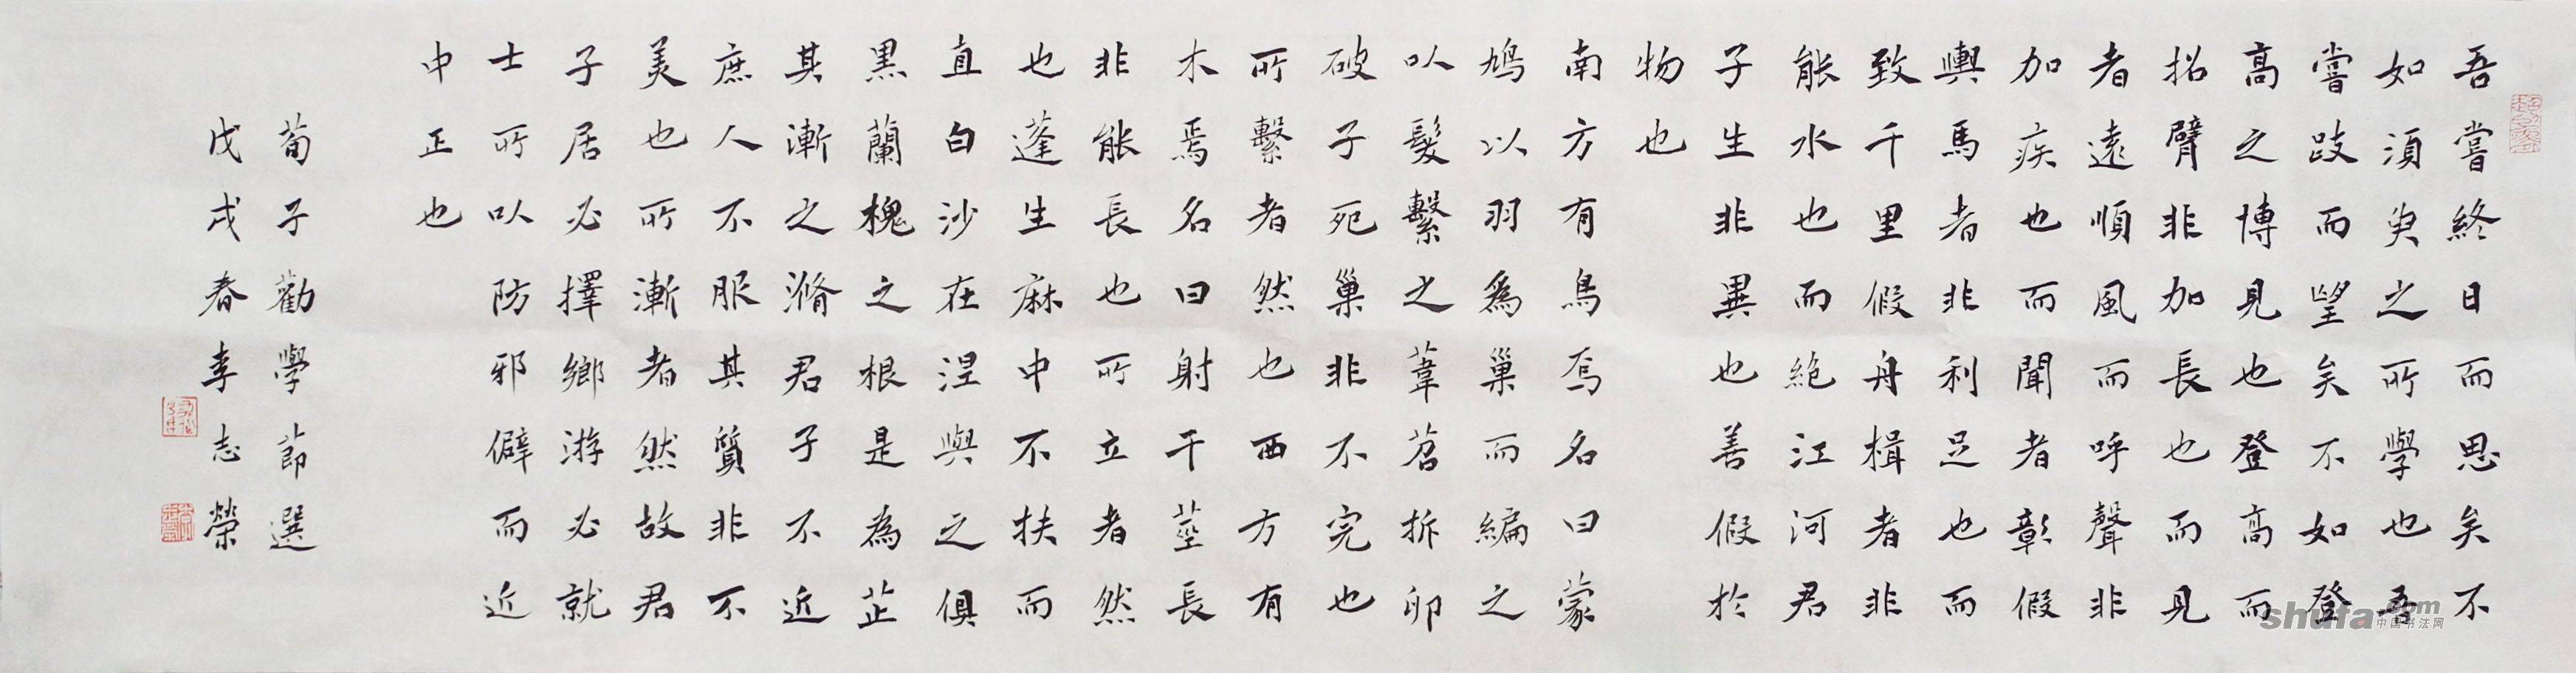 吾嘗終日而思矣不
如須臾之所學也吾
嘗跂而望矣不如登
高之博見也登高而
招臂非加長也而見
者遠順風而呼聲非
加疾也而聞者彰假
輿馬者非利足也而
致千里假舟楫者非
能水也而絕江河君
子生非異也善假於
物也
南方有鳥焉名曰蒙
鳩以羽為巢而編之
以髮繫之葦苕折卵
破子死巢非不完也
所繫者然也西方有
木焉名曰射干莖長
非能長也所立者然
也蓬生麻中不扶而
直白沙在涅與之俱
黑蘭槐之根是為芷
其漸之滫君子不近
庶人不服其質非不
美也所漸者然故君
子居必擇鄉游必就
士所以防邪僻而近
中正也
荀子勸學節選
戊戌春李志榮
shufa.com
中国书法网